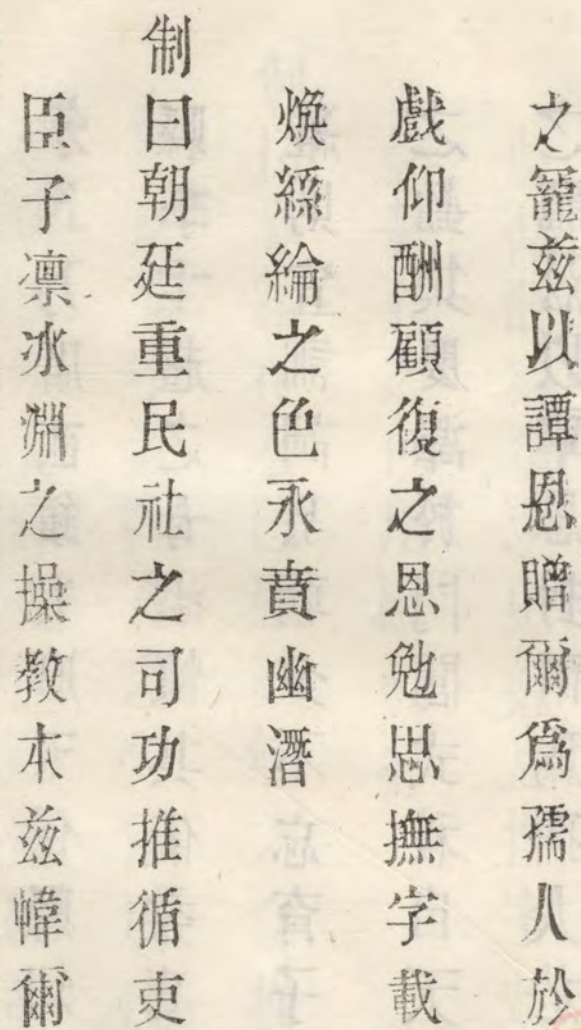 之寵兹以譚恩贈爾爲孺人於
戲仰酬顧復之恩勉思撫字載
煥絲綸之色永賁幽潛
制曰朝廷重民社之司功推循吏
臣子凛冰淵之操教本兹幃爾